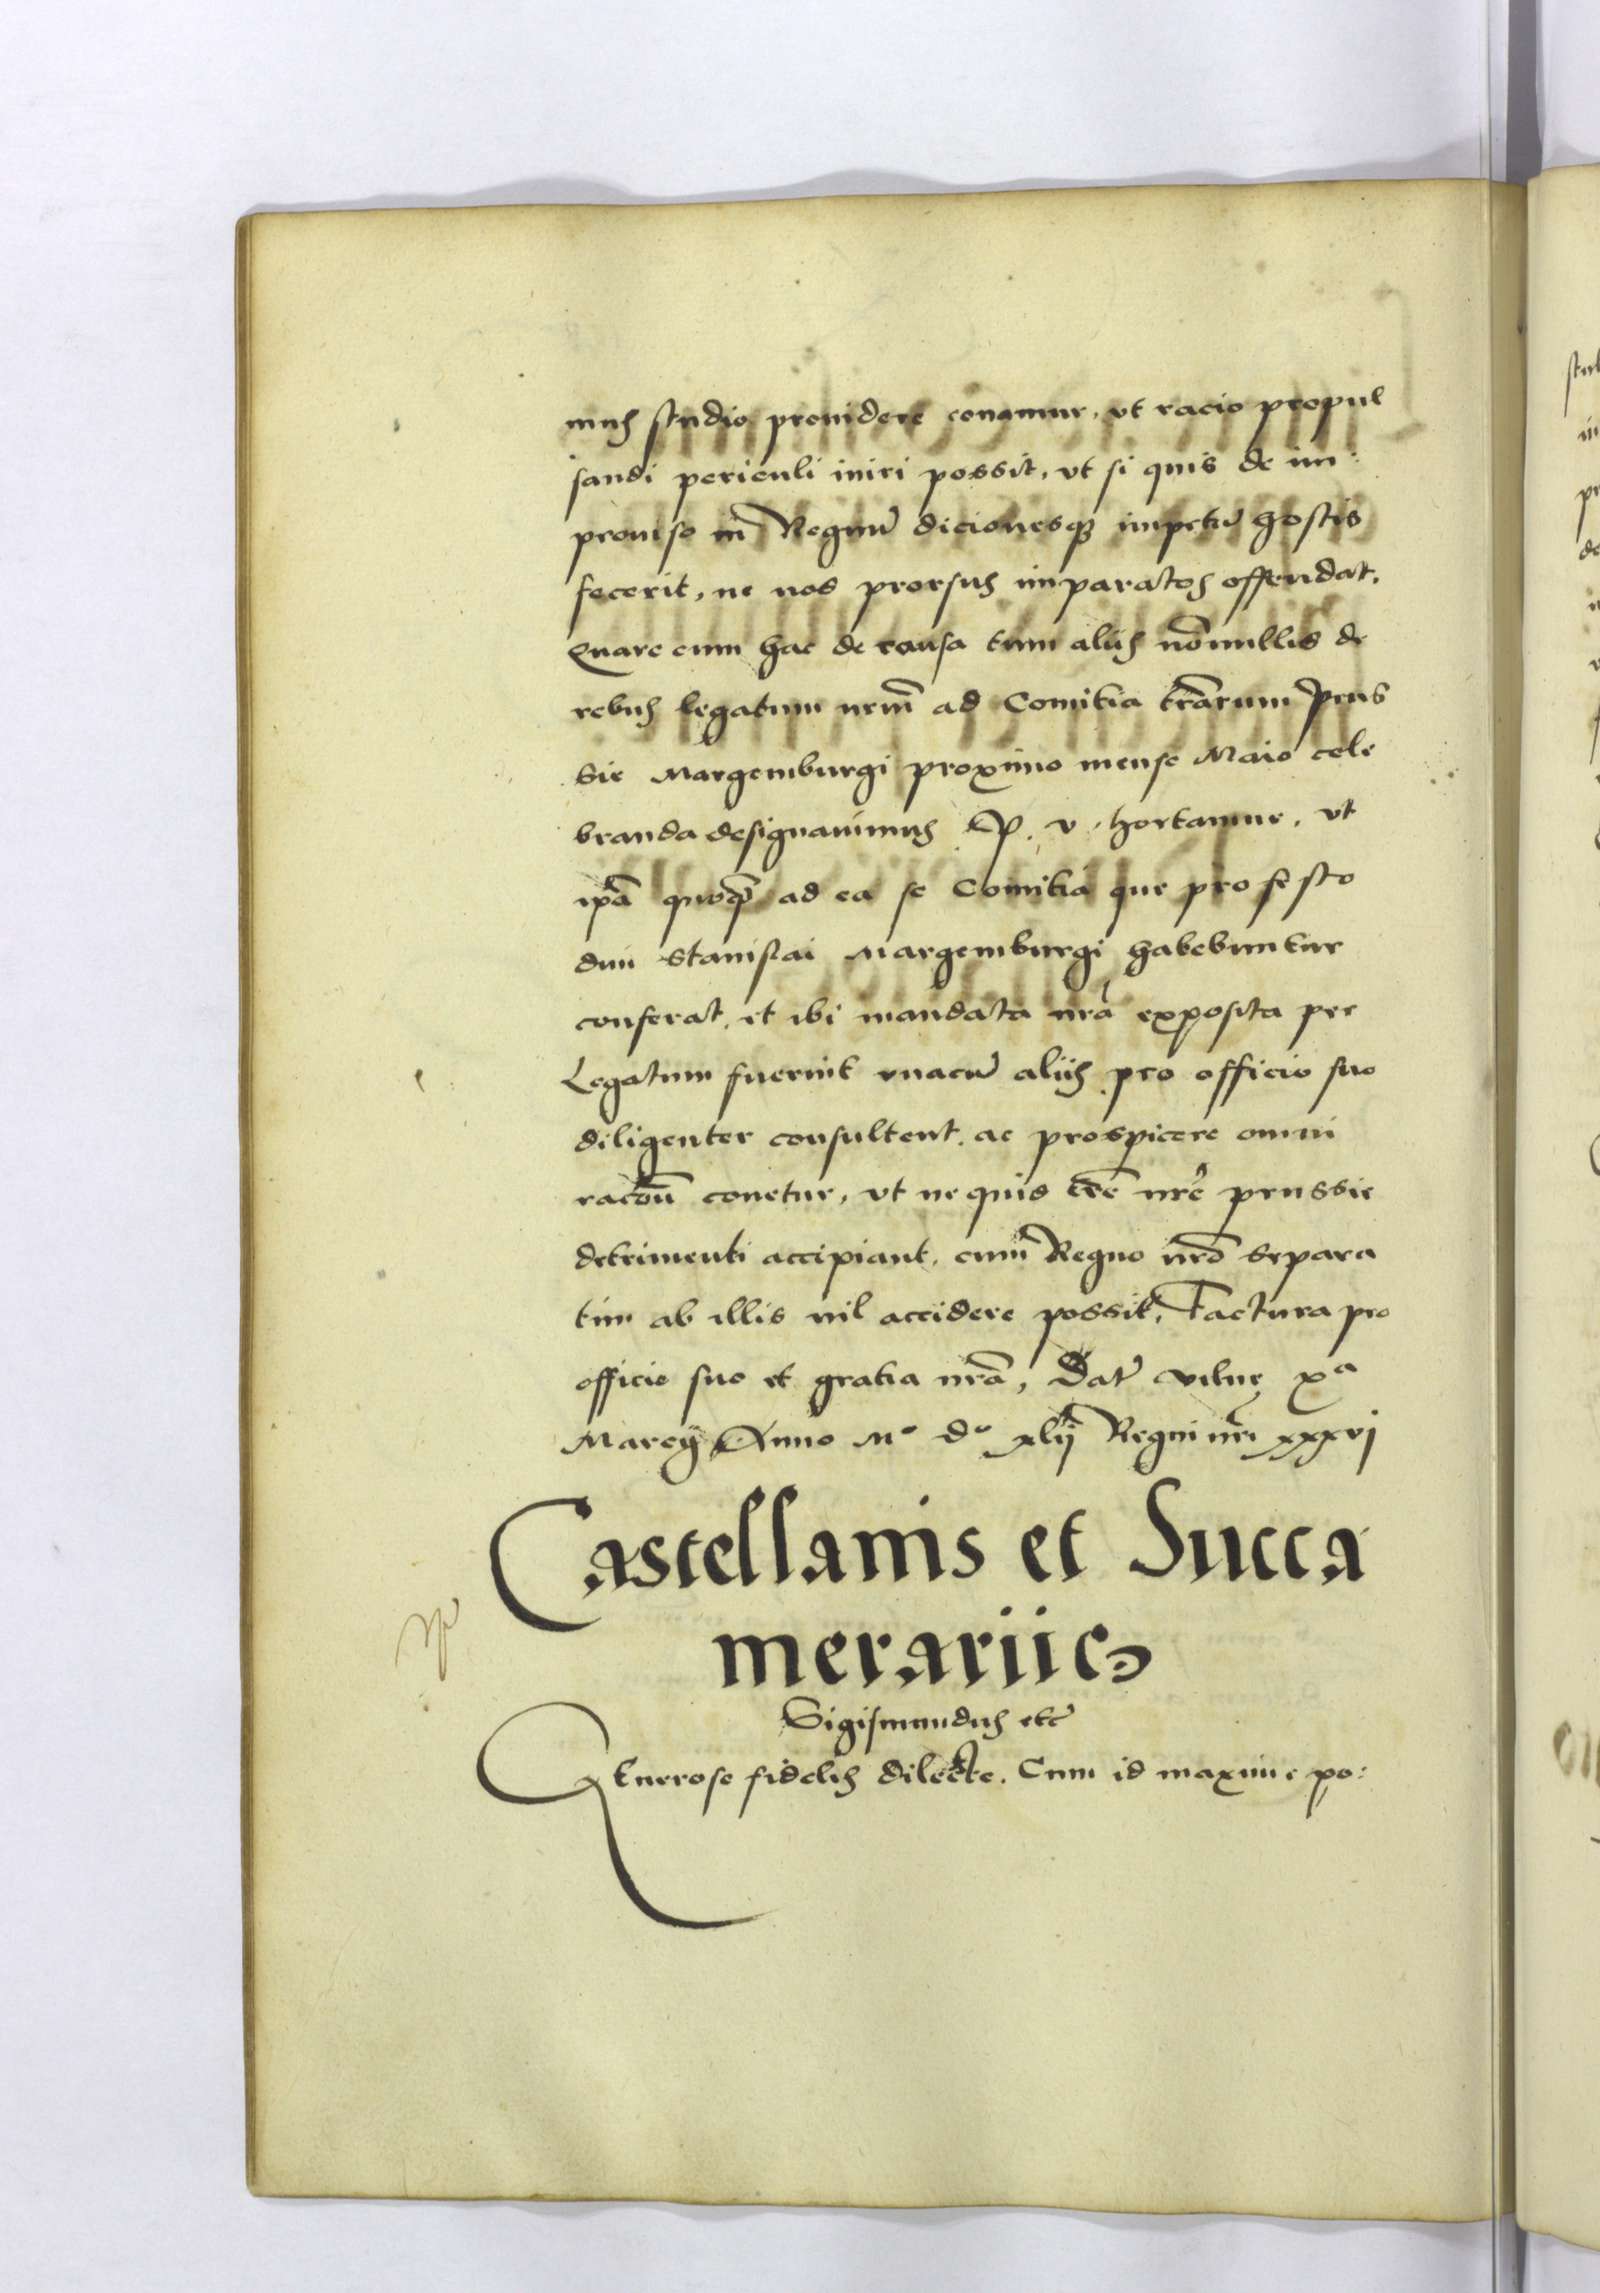 mus studio prouidere conamur, vt racio propul
sandi periculi iniri possit, vt si quis de im:
prouiso in Regnũ dicionesq3 impetũ hostis
fecerit, ne nos prorsus imparatos offendat.
Quare cum hac de causa tum aliis nõnullis de
rebus legatum nrm̃ ad Comitia tr̃arum Prus
sie Margemburgi proximo mense Maio cele
branda designauimus v. hortamur, vt
ip̃a quoq3 ad ea se Comitia que pro festo
diui Stanislai Margemburgi habebuntur
conferat, et ibi mandata nr̃a exposita per
Legatum fuerint vnacũ aliis pro officio suo
diligenter consultent, ac prospicere omni
racõn conetur, vt ne quid tr̃e nr̃e prussie
detrimenti accipiant, cum Regno nr̃o separa
tim ab illis nil accidere possit, Factura pro
officio suo et gratia nr̃a, Dat̃ Vilne xa
Marcij Anno Mo do xlij Regni nr̃i xxxvj
Castellanis et Succa
merariis
Sigismundus etc̃
Generose fidelis dilecte. Cum id maxime po: